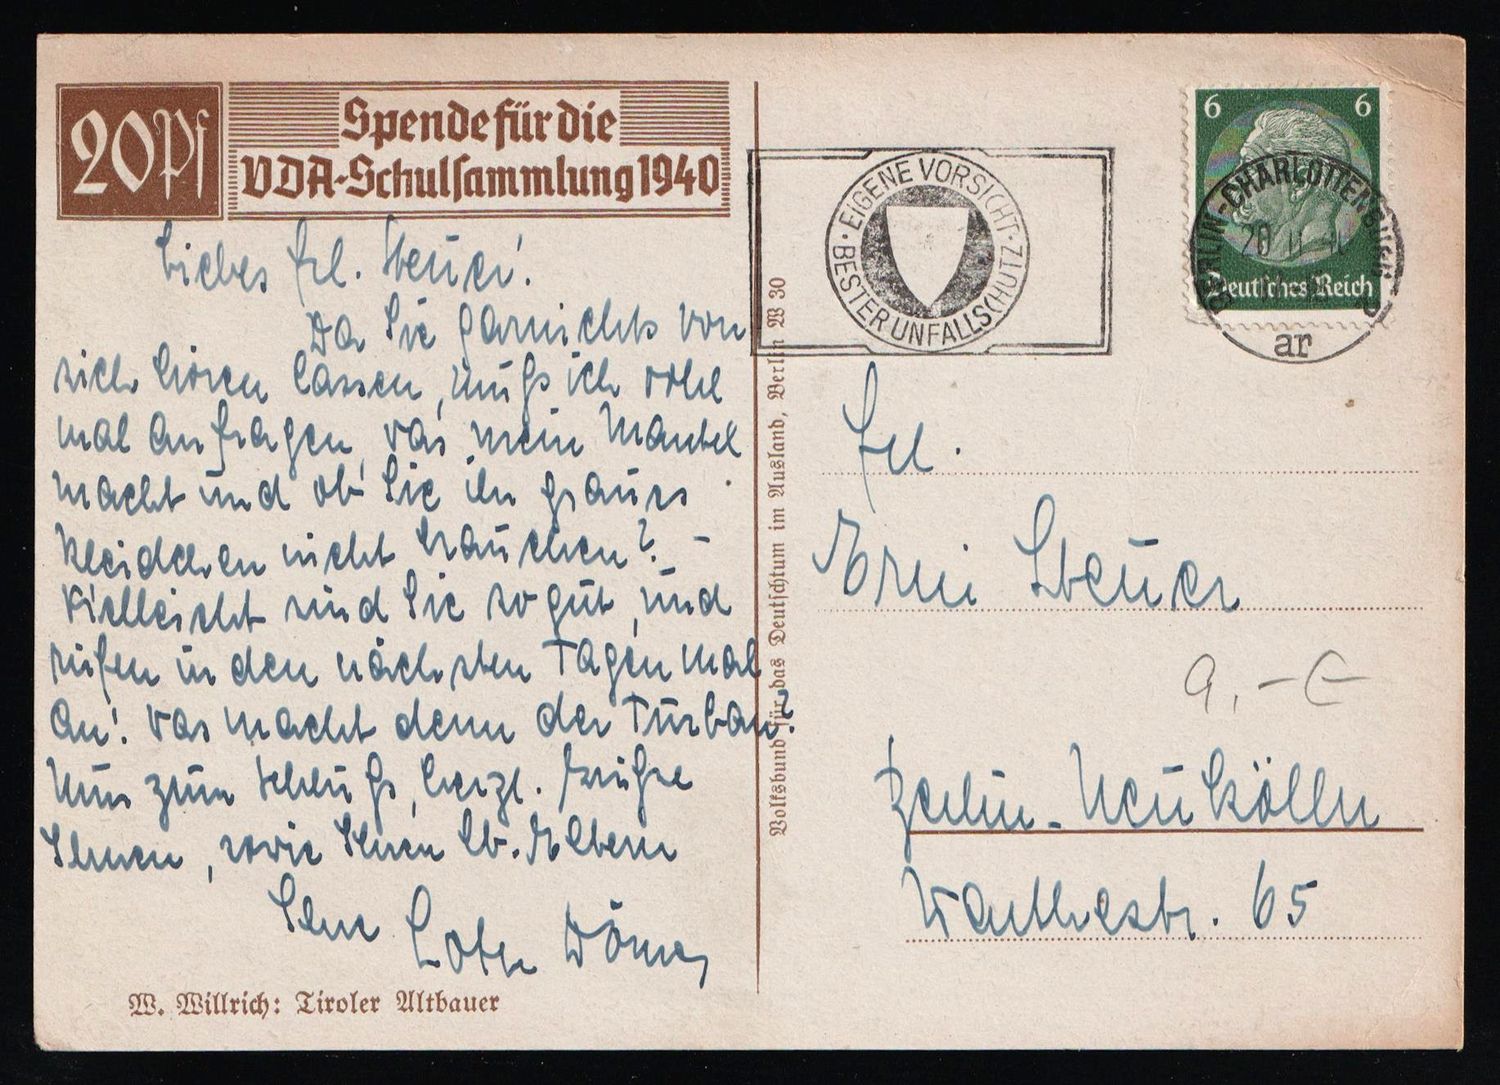 20Pf
Spende für die
VDA-Schulsammlung 1940
Liebes Frl. Steuer!
Da Sie garnichts von
sich hören lassen, muß ich wohl
mal anfragen, was mein Mantel
macht und ob Sie ihr graues
Kleidchen nicht brauchen? –
Vielleicht sind Sie so gut, und
rufen in den nächsten Tagen mal
an! Was macht denn der Turban?
Nun zum Schluß, herzl. Grüße
Ihnen, sowie Ihren lb. Eltern
Ihre
W. Willrich: Tiroler Altbauer
Volksbund für das Deutschtum im Ausland, Berlin W 30
EIGENE VORSICHT · BESTER UNFALLSCHUTZ ·
6 6
Deutsches Reich
BERLIN-CHARLOTTENBURG
20
ar
Frl.
Erni Steuer
9,- €
Berlin-Neukölln
Warthestr. 65